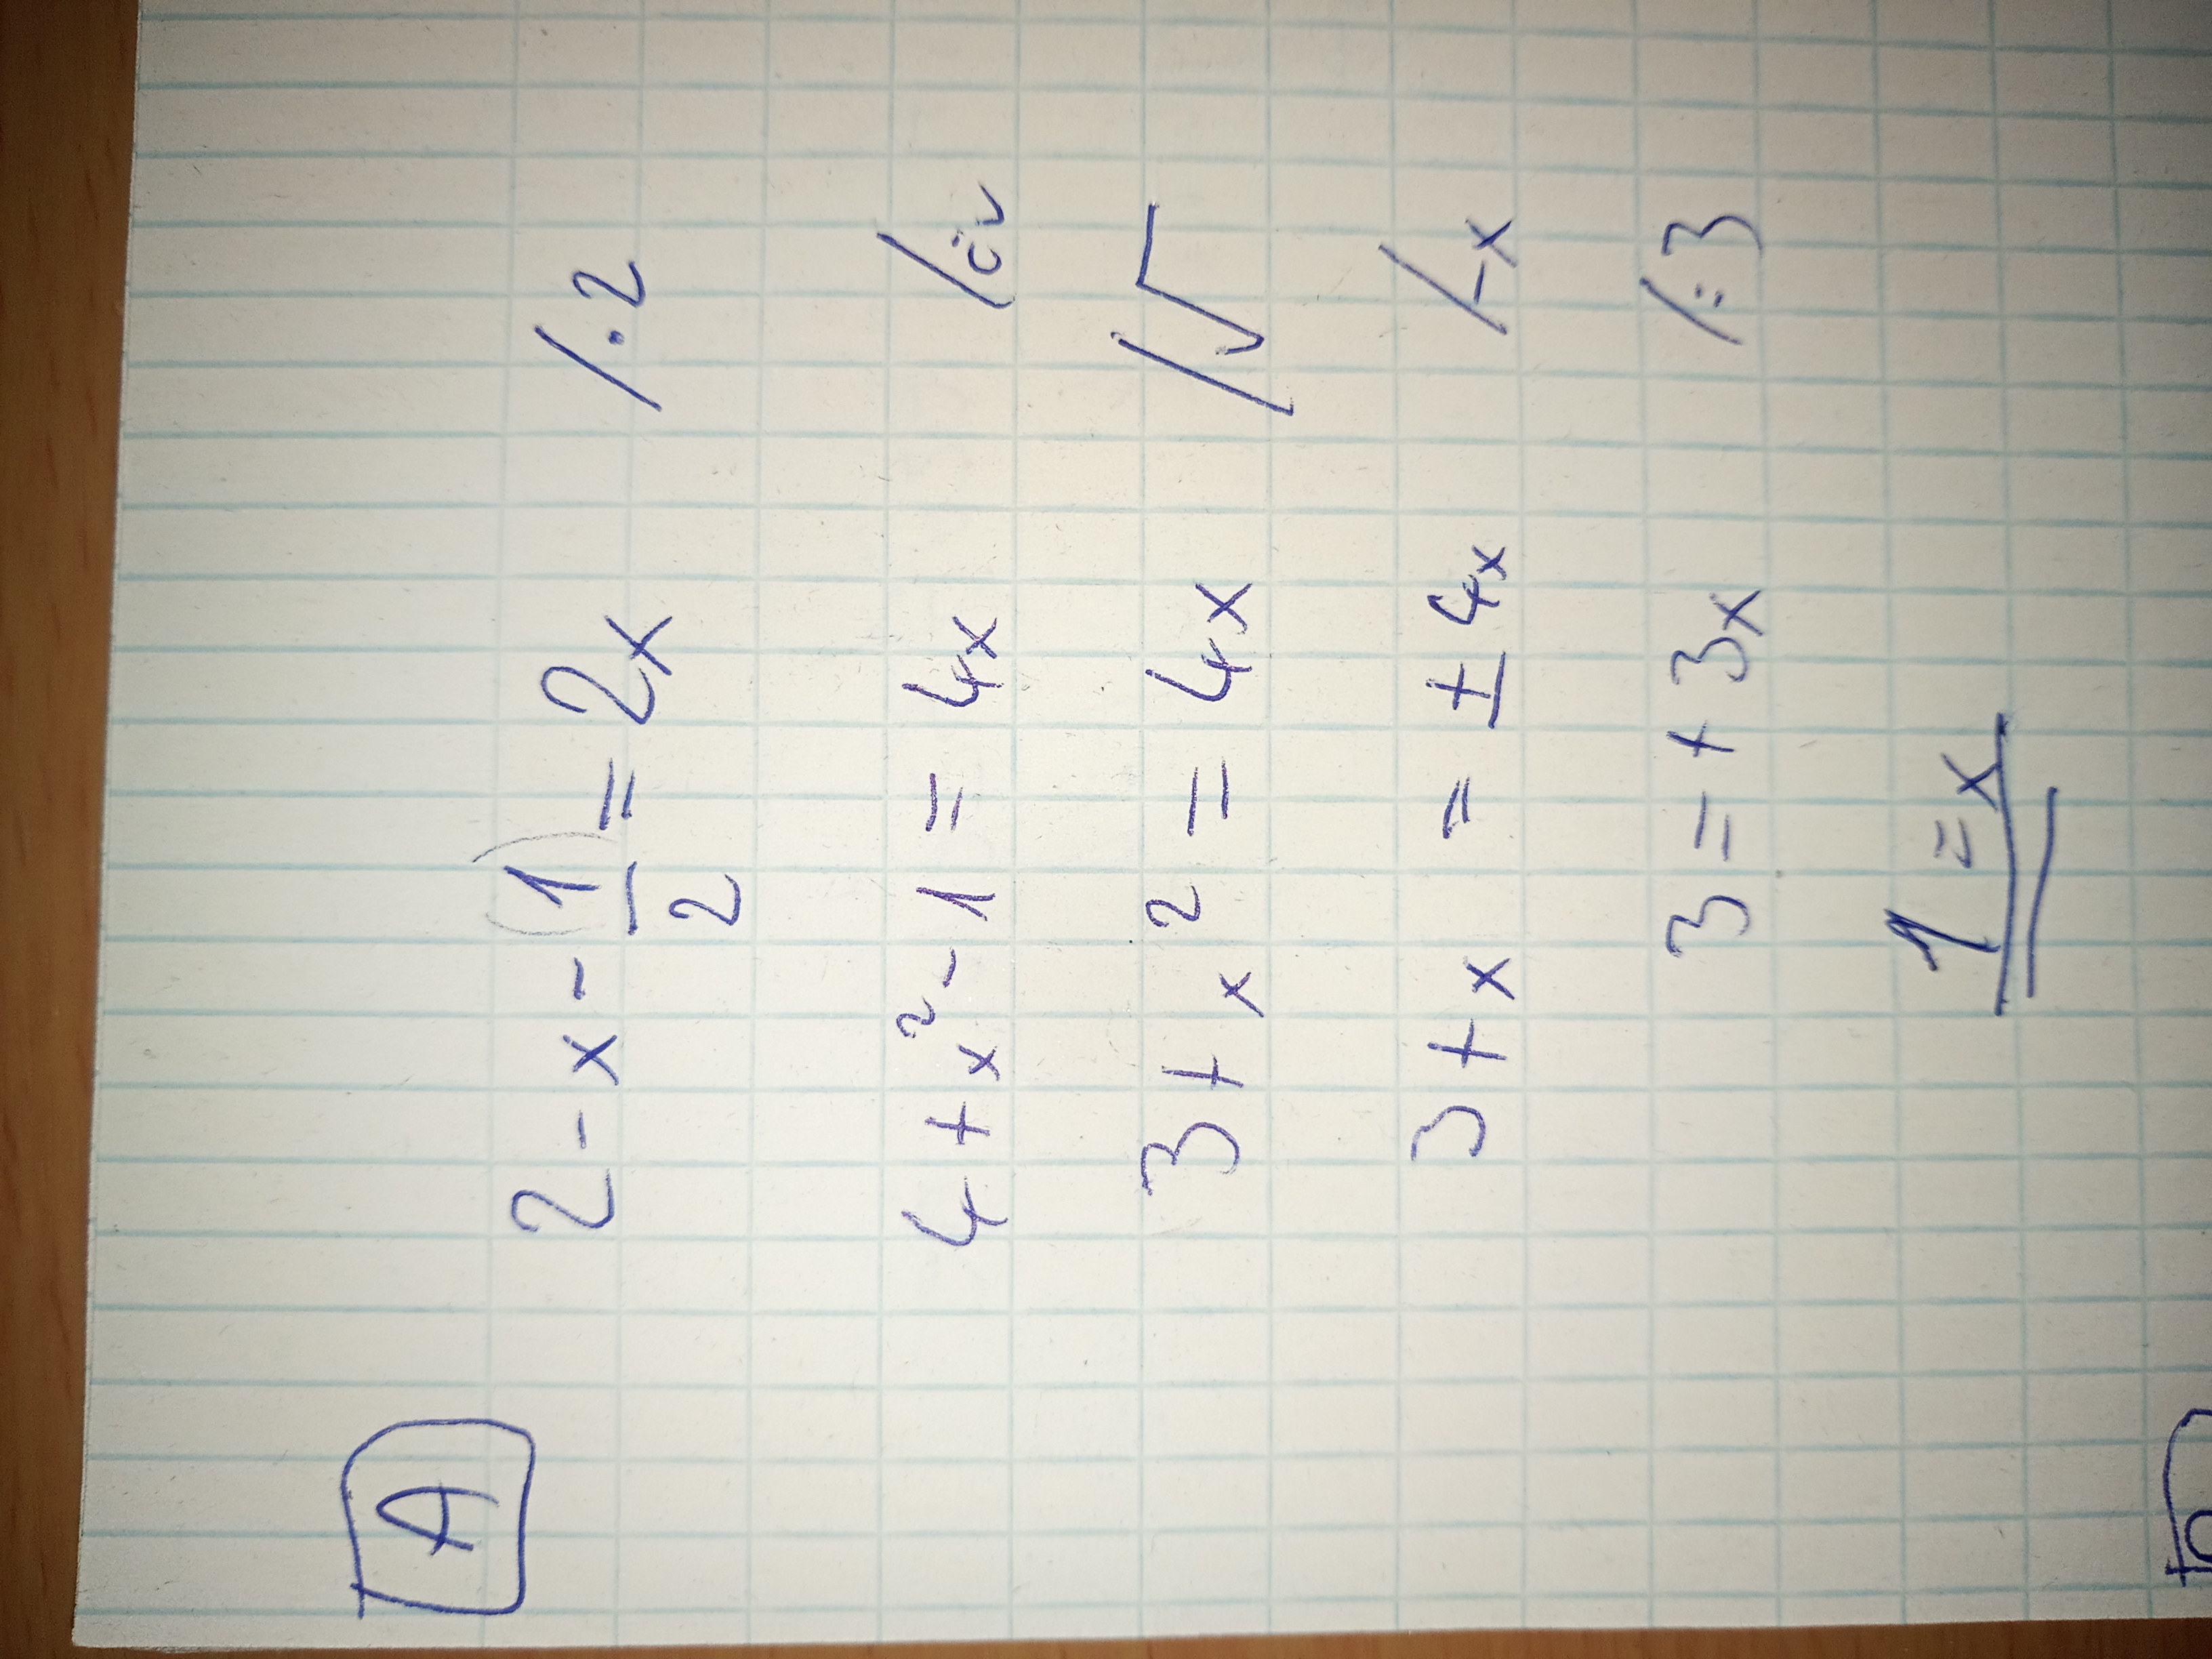 A
2 - x - 1/2 = 2x /·2
4 + x² - 1 = 4x /öv
3 + x² = 4x /√
3 + x = ± 4x /-x
3 = + 3x /:3
1 = x